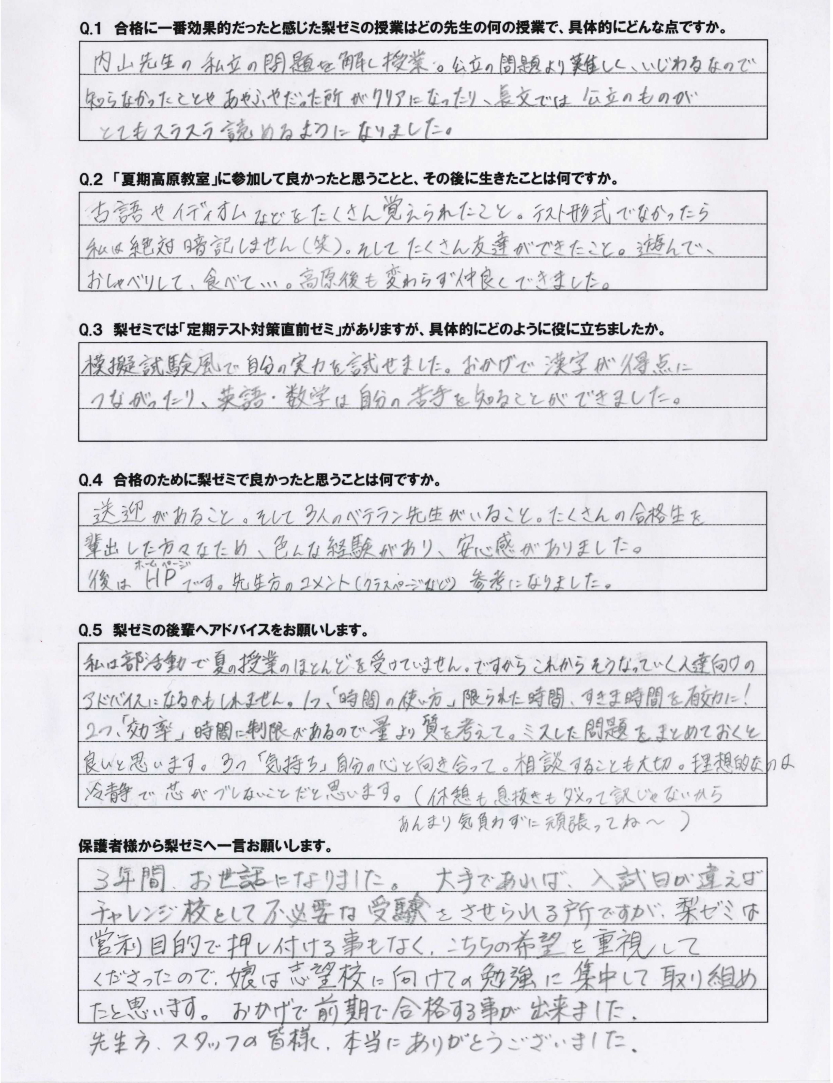 Q.1 合格に一番効果的だったと感じた梨ゼミの授業はどの先生の何の授業で、具体的にどんな点ですか。
内山先生の私立の問題を解く授業。公立の問題より難しく、いじわるなので
知らなかったことやあやふやだった所がクリアになったり、長文では公立のものが
とてもスラスラ読めるようになりました。
Q.2 「夏期高原教室」に参加して良かったと思うことと、その後に生きたことは何ですか。
古語やイディオムなどをたくさん覚えられたこと。テスト形式でなかったら
私は絶対暗記しません(笑)。そしてたくさん友達ができたこと。遊んで、
おしゃべりして、食べて…。高原後も変わらず仲良くできました。
Q.3 梨ゼミでは「定期テスト対策直前ゼミ」がありますが、具体的にどのように役に立ちましたか。
模擬試験風で自分の実力を試せました。おかげで漢字が得点に
つながったり、英語・数学は自分の苦手を知ることができました。
Q.4 合格のために梨ゼミで良かったと思うことは何ですか。
送迎があること。そして3人のベテラン先生がいること。たくさんの合格生を
輩出した方々なため、色んな経験があり、安心感がありました。
ホームページ
後はHPです。先生方のコメント(クラスページなど)参考になりました。
Q.5 梨ゼミの後輩へアドバイスをお願いします。
私は部活動で夏の授業のほとんどを受けていません。ですからこれからそうなっていく人達向けの
アドバイスになるかもしれません。1つ、「時間の使い方」限られた時間、すきま時間を有効に!
2つ、「効率」時間に制限があるので量より質を考えて。ミスした問題をまとめておくと
良いと思います。3つ「気持ち」自分の心と向き合って。相談することも大切。理想的なのは
冷静で芯がブレないことだと思います。(休憩も息抜きもダメって訳じゃないから
あんまり気負わずに頑張ってね〜)
保護者様から梨ゼミへ一言お願いします。
3年間、お世話になりました。 大手であれば、入試日が違えば
チャレンジ校として不必要な受験をさせられる所ですが、梨ゼミは
営利目的で押し付ける事もなく、こちらの希望を重視して
くださったので、娘は志望校に向けての勉強に集中して取り組め
たと思います。おかげで前期で合格する事が出来ました。
先生方、スタッフの皆様、本当にありがとうございました。